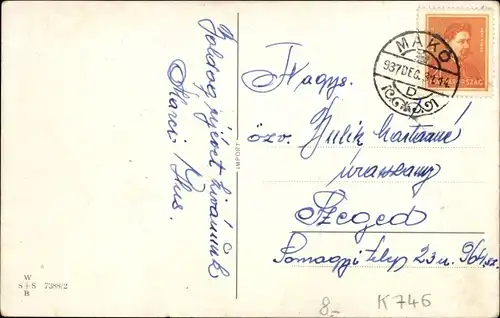 Boldog újévet kívánunk
Marci Klus.
IMPORT
W
S+S 7388/2
B
MAKÓ
937 DEC. 31 14
D
ORSZÁG
Nagys.
özv. Julik
úrasszony
Szeged
Somogyi telep 23 u. 964. sz.
8.- K746